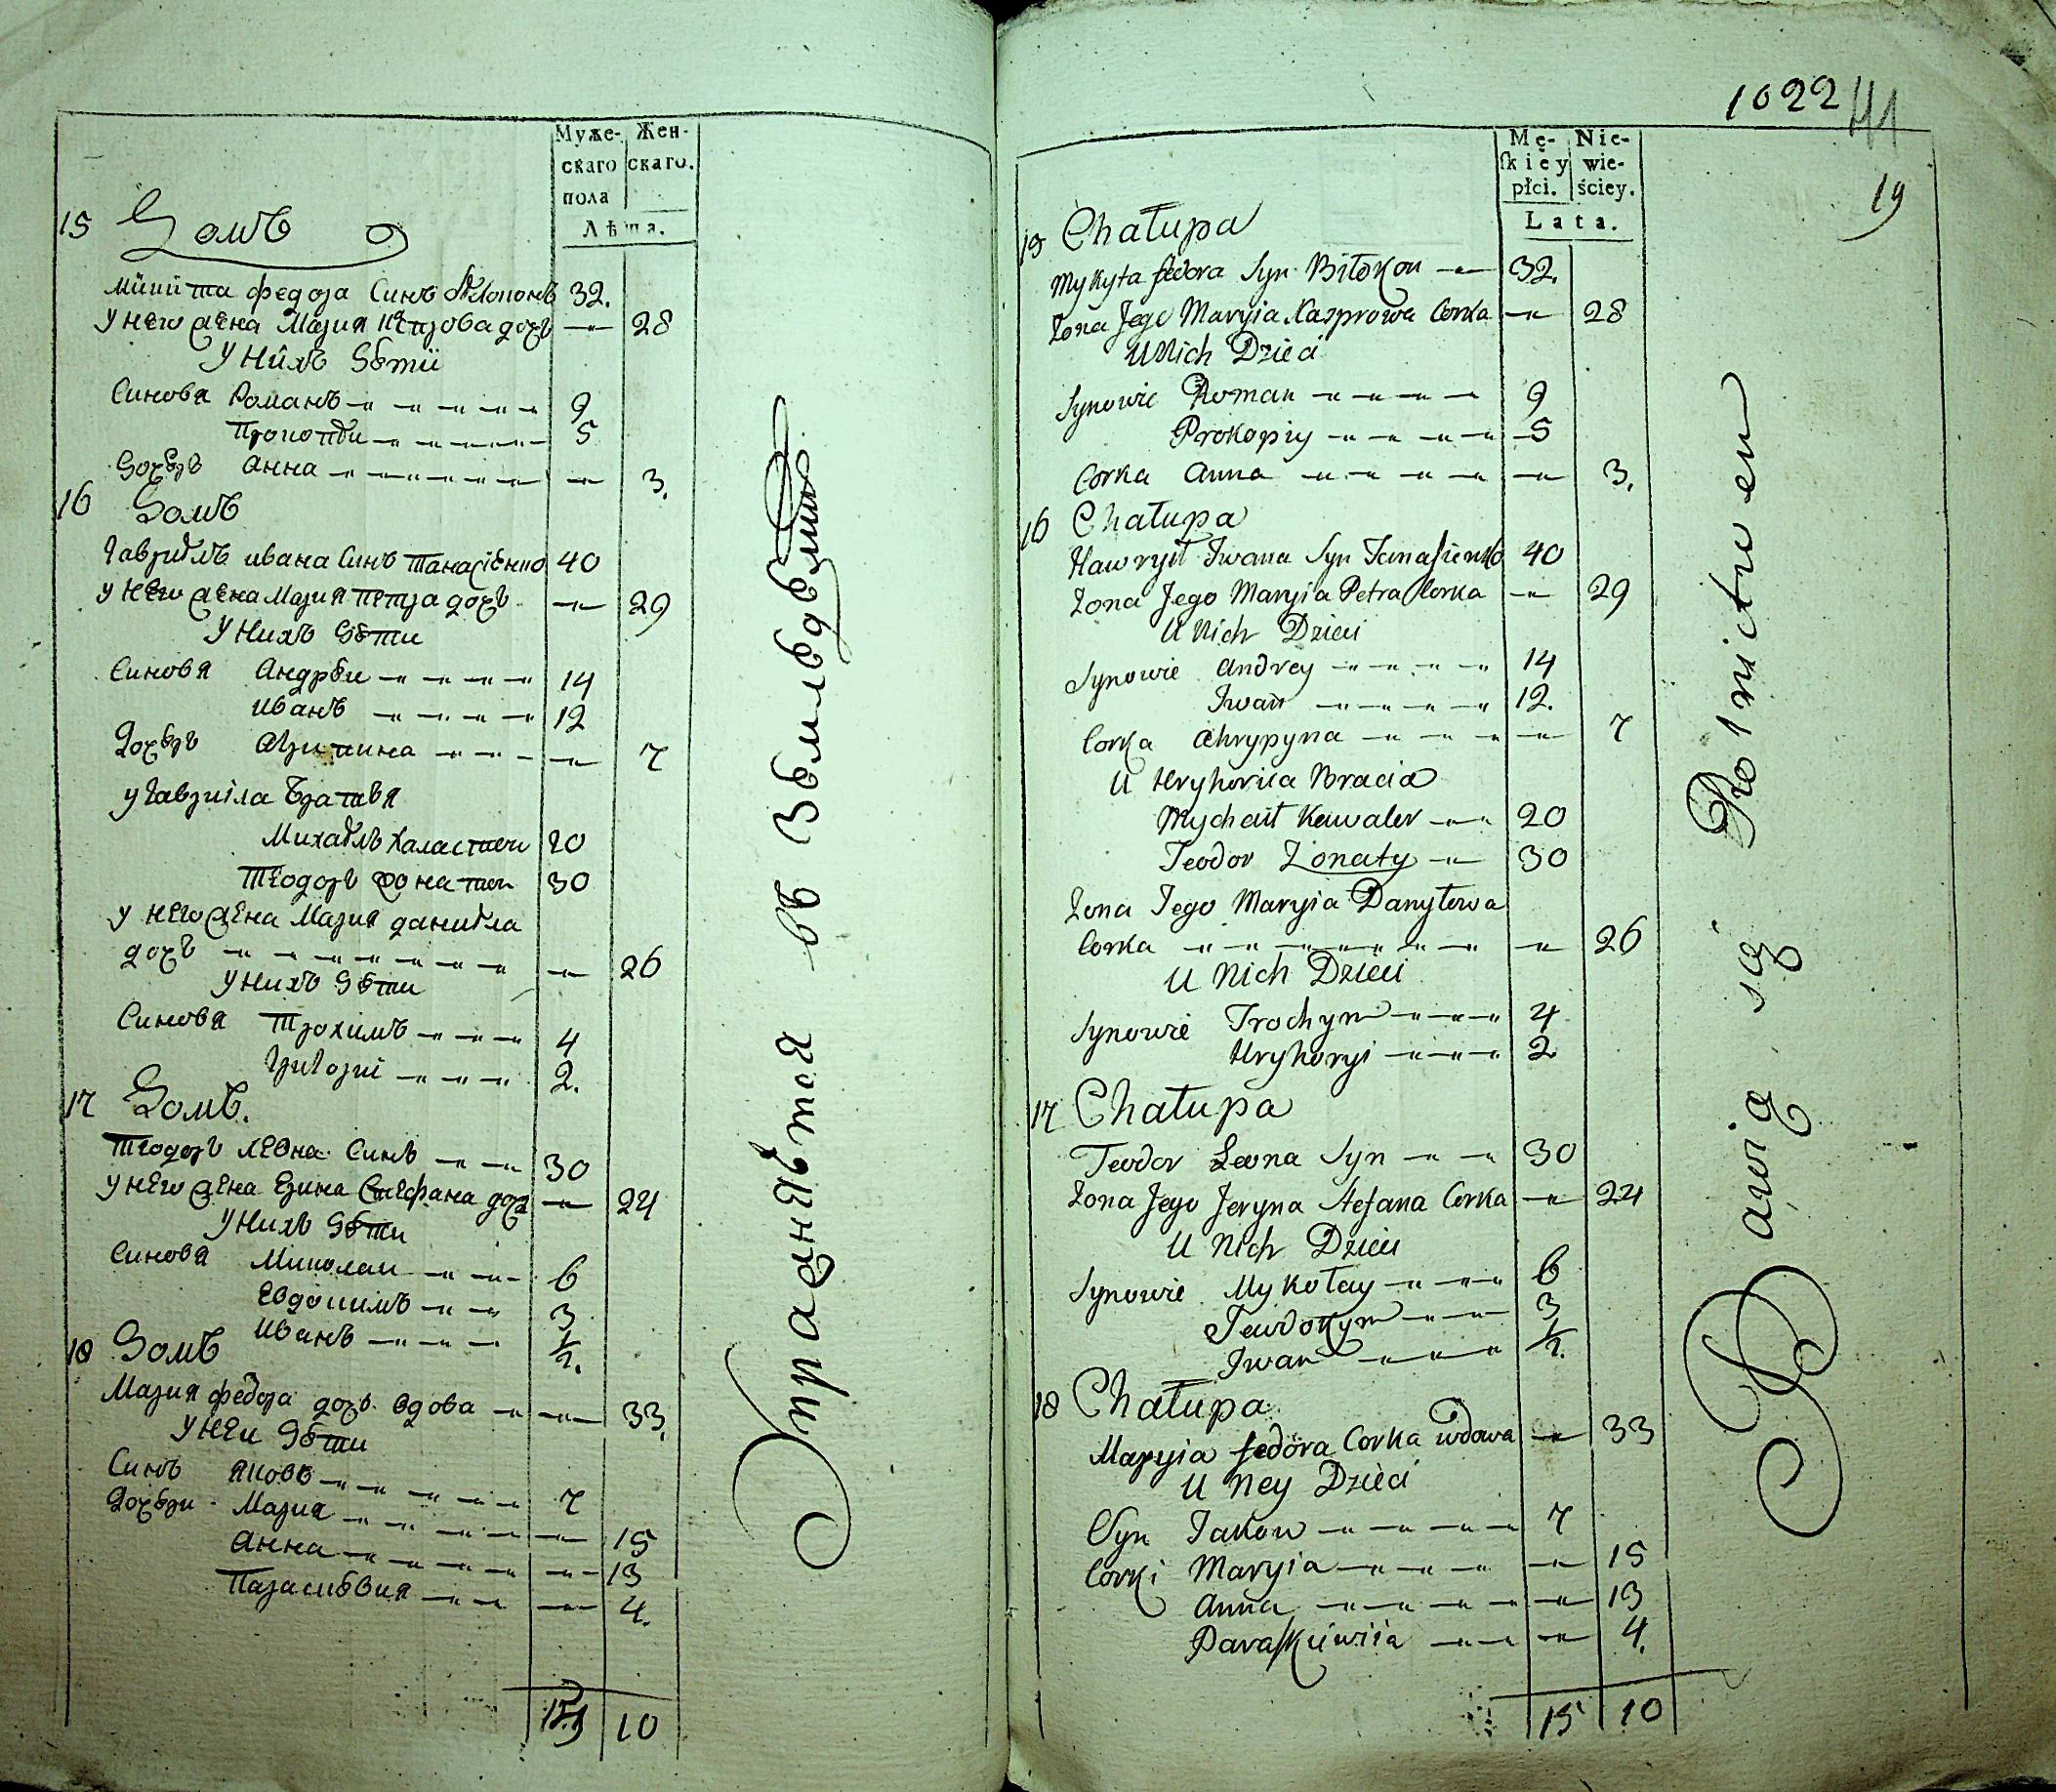 Муже-
скаго
пола
Жен-
скаго.
Лѣта.
15 Домъ
Микита федора Синъ Бѣлоконь 32.
У него жена Мария дочь — 28
У нихъ Дѣти
Синовя Романъ 9
Прокопѣи 5
Дочерь Анна — 3.
16 Домъ
Гавриилъ ивана Синъ Танасиенко 40
У него жена Мария петра дочь — 29
У нихъ Дѣти
Синовя Андрѣи 14
иванъ 12
Дочерь Агрипина — 7
У Гавриила Братвя
Михаилъ Халастии 20
Теодоръ Жонатии 30
У него жена Мария даниила
дочь — 26
У нихъ Дѣти
Синовя Трохимъ 4
Григории 2.
17 Домъ.
Теодоръ леона Синъ 30
У него жена Ерина Стефана дочь — 24
У нихъ Дѣти
Синовя Миколаи 6
Евдокимъ 3
иванъ 1/2.
18 Домъ
Мария федора дочь вдова — 33.
У неи Дѣти
Синъ Яковъ 7
Дочери Мария — 15
Анна — 13
Параскѣвия — 4.
15 10
Упражняются въ Земледѣлии
1022
41
19
Mę-
skiey
płci.
Nie-
wie-
ściey.
Lata.
15 Chałupa
Mykyta fedora Syn Biłokon 32.
Zona Jego Maryia Karprowa Corka — 28
U Nich Dzieci
Synowie Roman 9
Prokopiy 5
Corka Anna — 3.
16 Chałupa
Hawryił Jwana Syn Tanasienko 40
Zona Jego Maryia Petra Corka — 29
U Nich Dzieci
Synowie Andrey 14
Jwan 12.
Corka Ahrypyna — 7
U Hryhorica Bracia
Mychaił Kawaler 20
Teodor Zonaty 30
Zona Jego Maryia Danyłowa
Corka — 26
U Nich Dzieci
Synowie Trochym 4
Hryhoryi 2
17 Chałupa
Teodor Leona Syn 30
Zona Jego Jeryna Stefana Corka — 24
U Nich Dzieci
Synowie Mykołay 6
Jewdokym 3
Jwan 1/2.
18 Chałupa
Maryia fedora Corka wdowa — 33
U Ney Dzieci
Syn Jakow 7
Corki Maryia — 15
Anna — 13
Paraskiewiia — 4.
15 10
Bawią się Rolnictwem